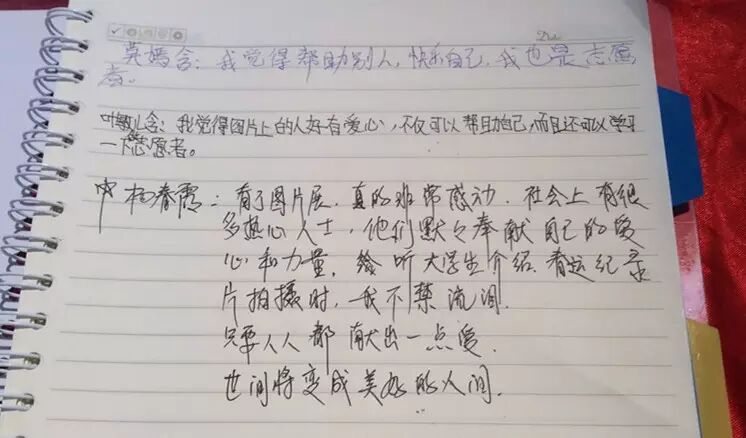 吴嫣含：我觉得帮助别人，快乐自己，我也是志愿
者。
叶敏儿含：我觉得图片上的人好有爱心，不仅可以帮助自己，而且还可以学习
一下志愿者。
杨春霞：看了图片展，真的非常感动．社会上有很
多热心人士，他们默々奉献自己的爱
心和力量．听大学生介绍、看这纪录
片拍摄时，我不禁流泪．
只要人人都献出一点爱．
世间将变成美好的人间．